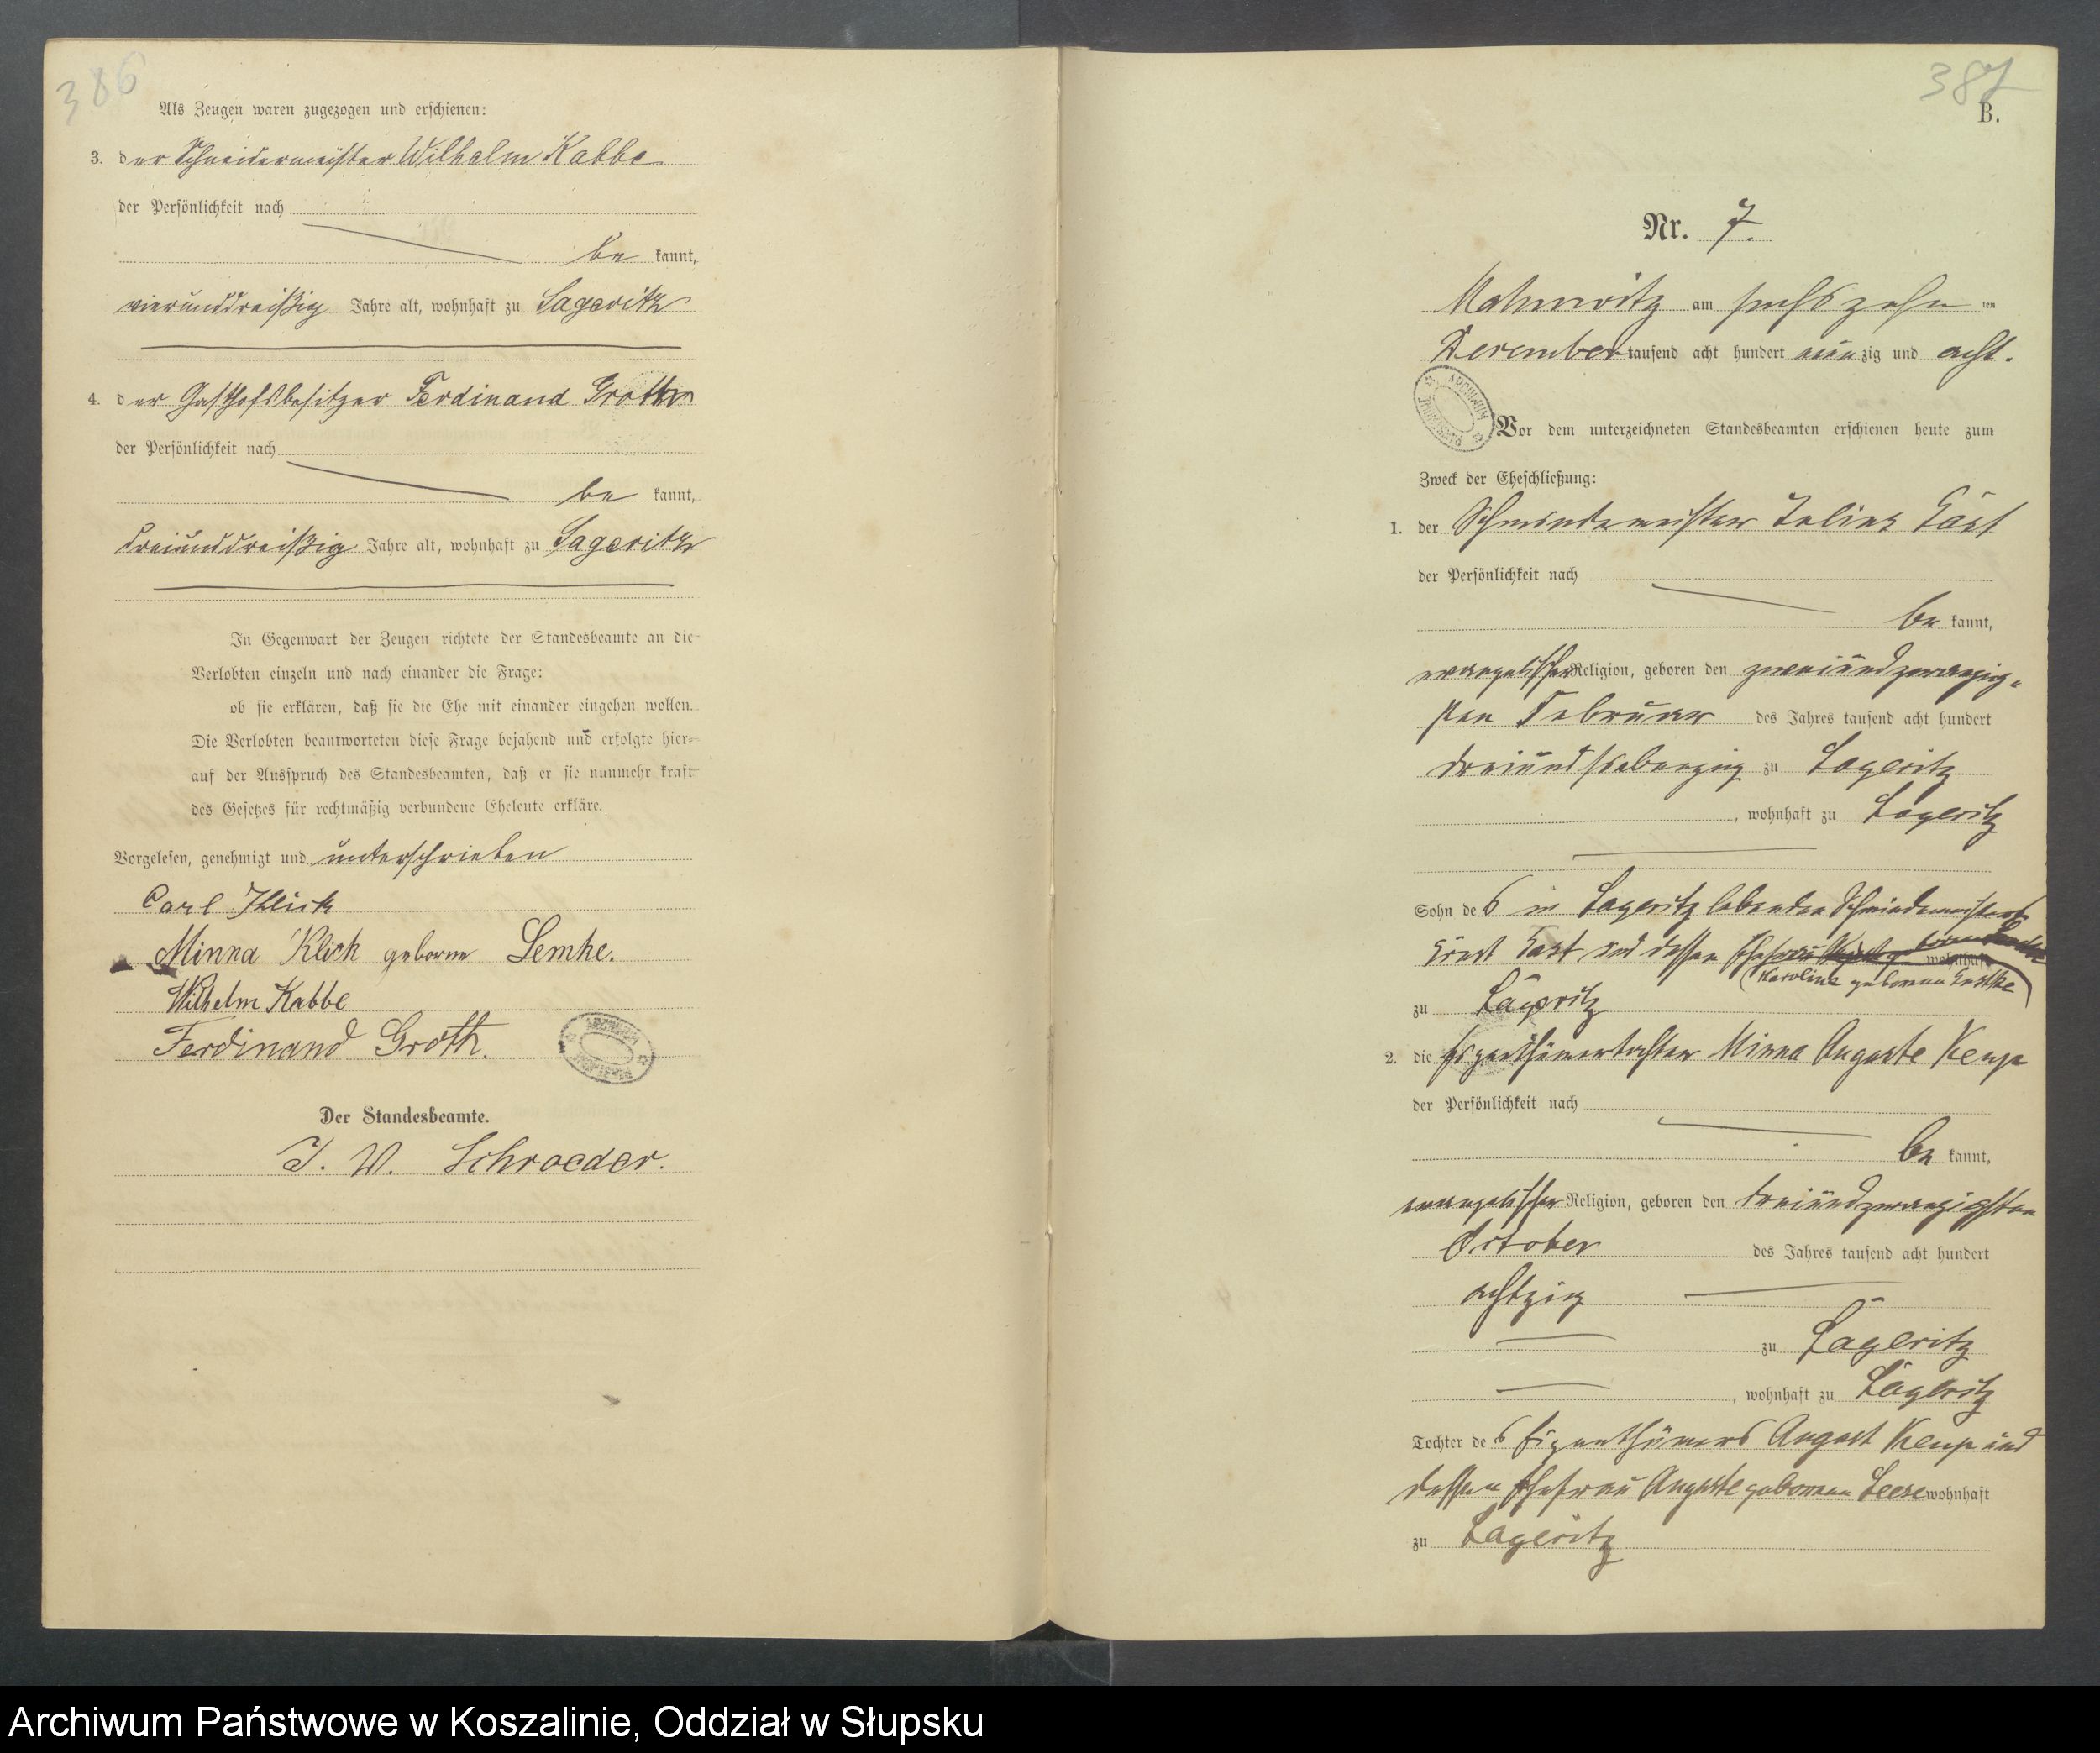 386
Als Zeugen waren zugezogen und erschienen:
3. der Schneidermeister Wilhelm Kabbe
der Persönlichkeit nach
be kannt,
vierunddreißig Jahre alt, wohnhaft zu Sageritz
4. der Gasthofsbesitzer Ferdinand Groth
der Persönlichkeit nach
be kannt,
dreiunddreißig Jahre alt, wohnhaft zu Sageritz
In Gegenwart der Zeugen richtete der Standesbeamte an die
Verlobten einzeln und nach einander die Frage:
ob sie erklären, daß sie die Ehe mit einander eingehen wollen.
Die Verlobten beantworteten diese Frage bejahend und erfolgte hier-
auf der Ausspruch des Standesbeamten, daß er sie nunmehr kraft
des Gesetzes für rechtmäßig verbundene Eheleute erkläre.
Vorgelesen, genehmigt und unterschrieben
Carl Klick
Minna Klick geborne Lemke.
Wilhelm Kabbe
Ferdinand Groth.
Der Standesbeamte.
J. W. Schroeder.
387
B.
Nr. 7.
Mahnwitz am sechszehn ten
December tausend acht hundert neunzig und acht.
Vor dem unterzeichneten Standesbeamten erschienen heute zum
Zweck der Eheschließung:
1. der Schmiedemeister Julius
der Persönlichkeit nach
be kannt,
evangelischer Religion, geboren den zweiundzwanzig-
sten Februar des Jahres tausend acht hundert
dreiundsiebenzig zu Sageritz
, wohnhaft zu Sageritz
Sohn des in Sageritz lebenden Schmiedemeisters
und dessen Ehefrau wohnhaft
Karoline geborenen
zu Sageritz
2. die Eigenthümertochter Minna Auguste
der Persönlichkeit nach
be kannt,
evangelischer Religion, geboren den dreiundzwanzigsten
October des Jahres tausend acht hundert
achtzig
zu Sageritz
, wohnhaft zu Sageritz
Tochter des Eigenthümers August und
dessen Ehefrau Auguste geborenen wohnhaft
zu Sageritz
Archiwum Państwowe w Koszalinie, Oddział w Słupsku